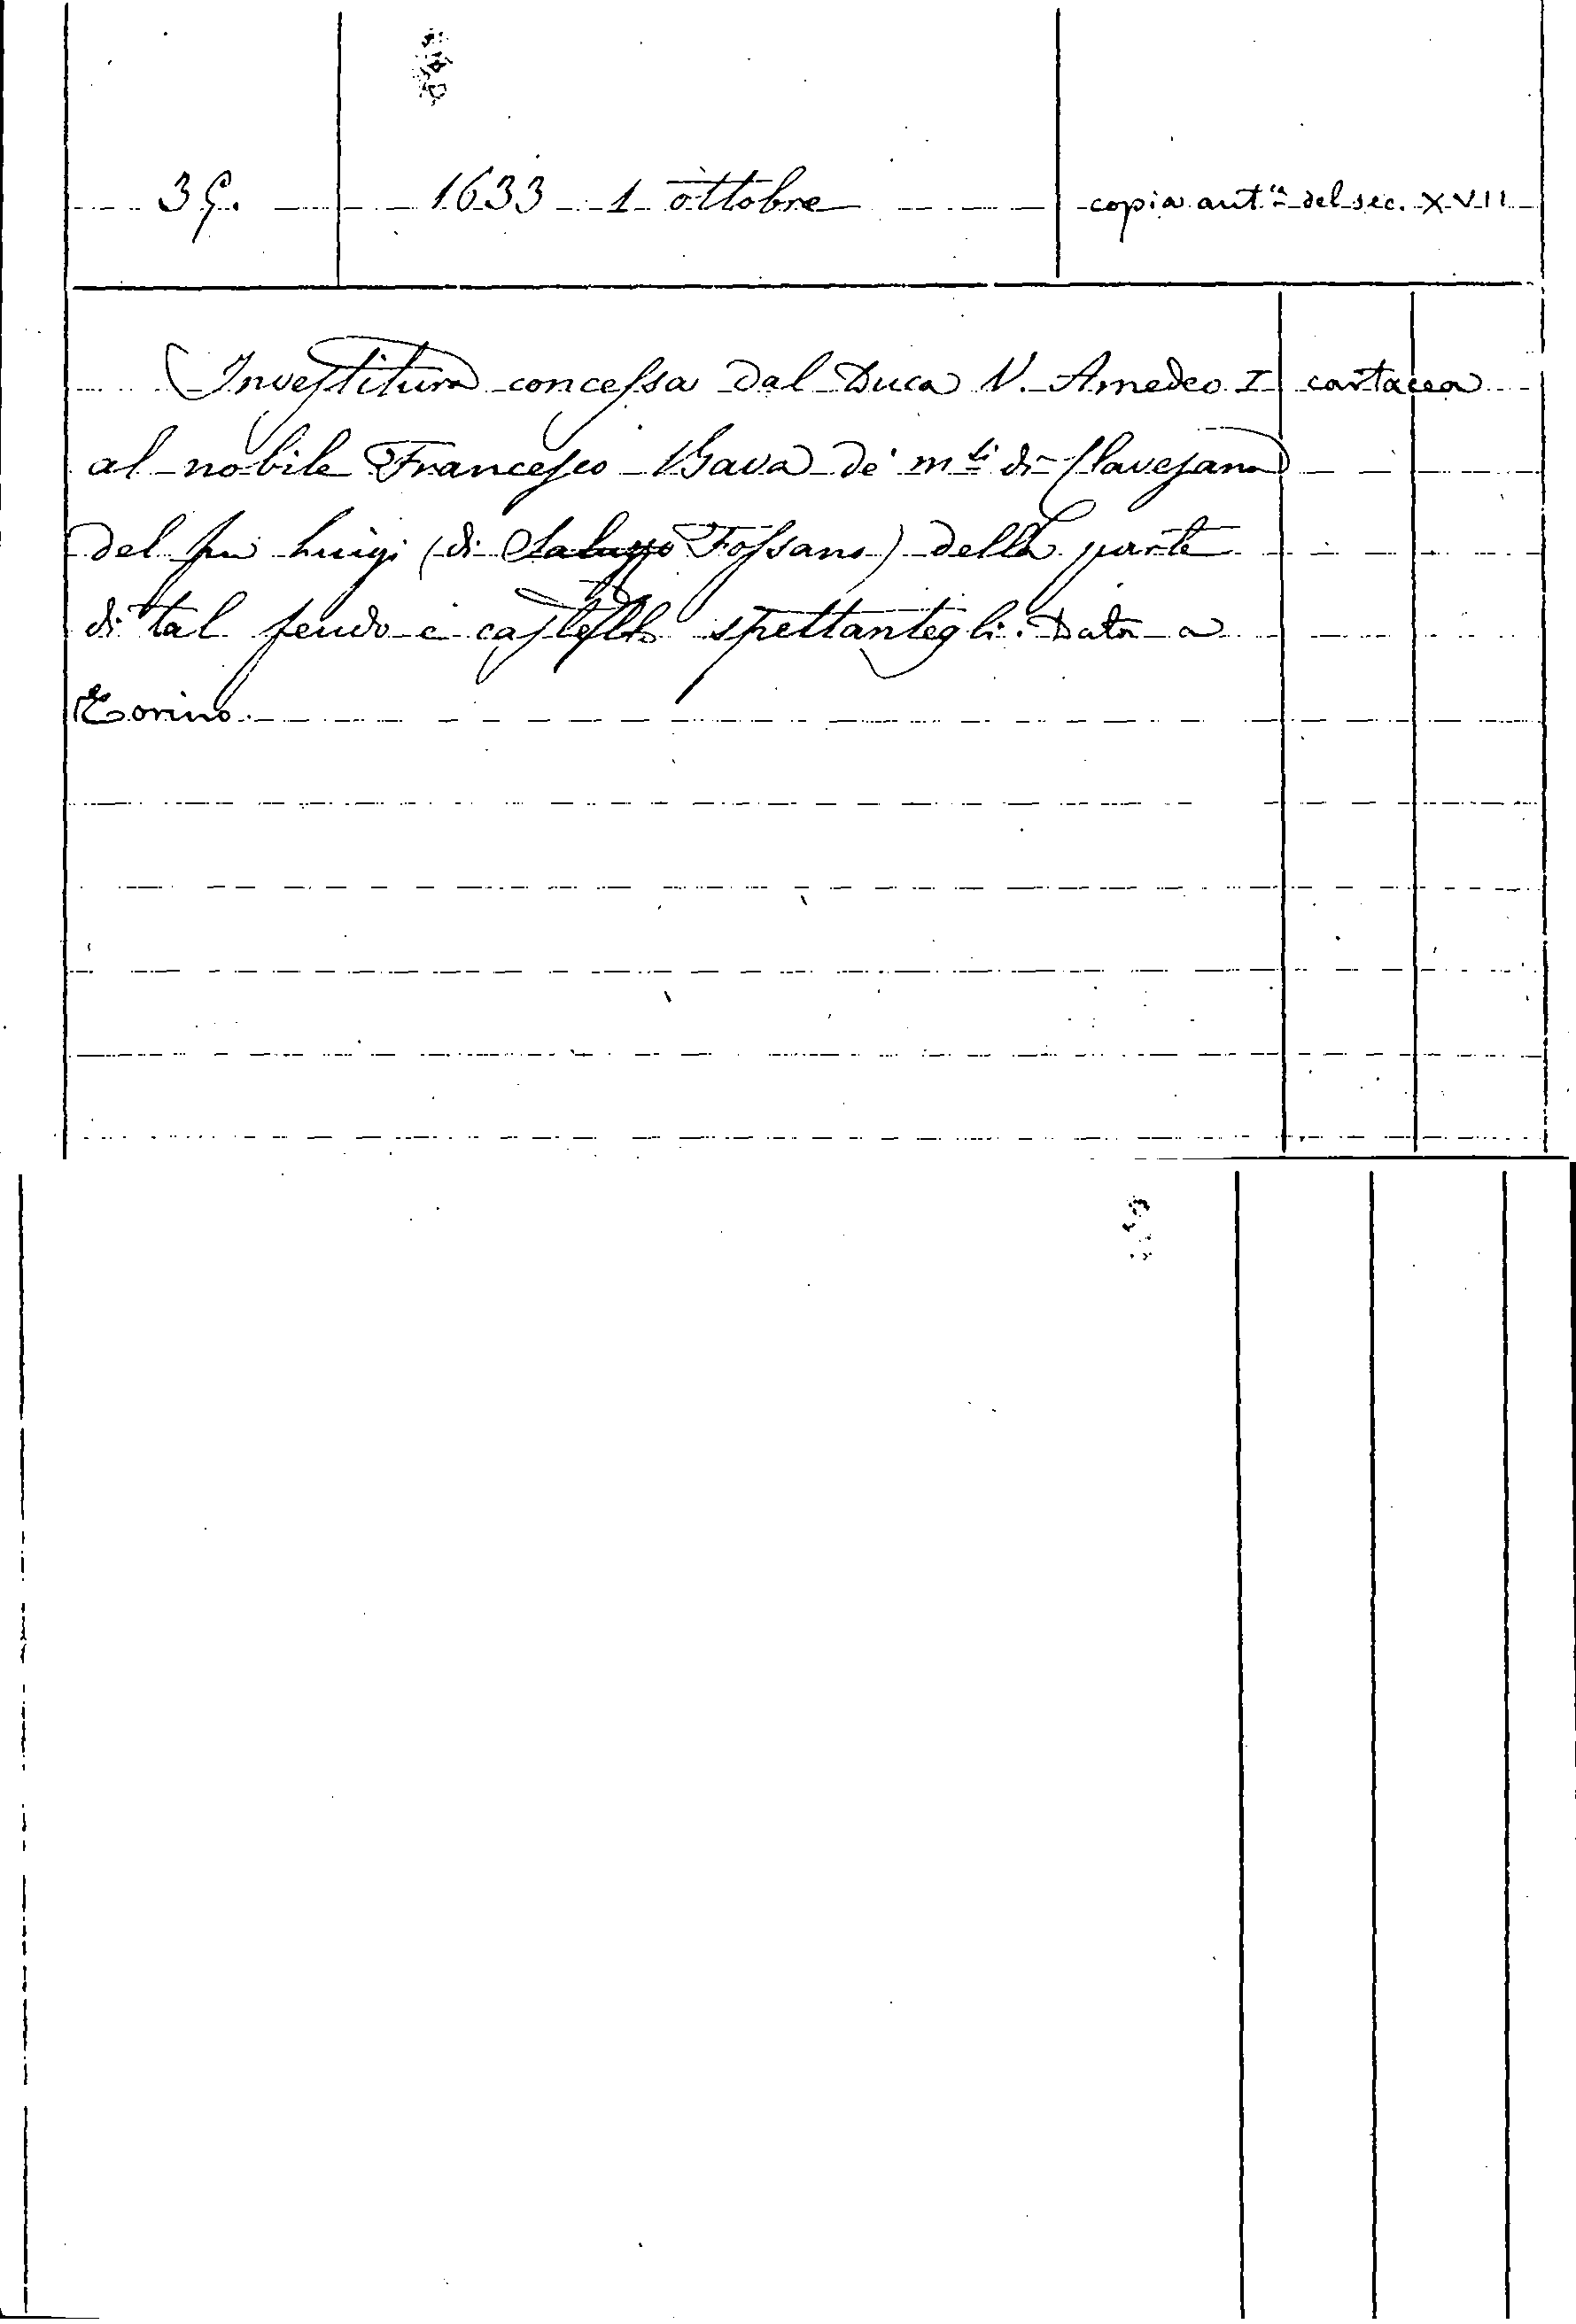 39. 1633 1 ottobre copia aut.ca del sec. XVII
Investitura concessa dal Duca V. Amedeo I cartacea
al nobile Francesco Bava de' m.si di Clavesana
del fu Luigi (di Saluzzo Fossano) della parte
di tal feudo e castello spettantegli. Data a
Torino.